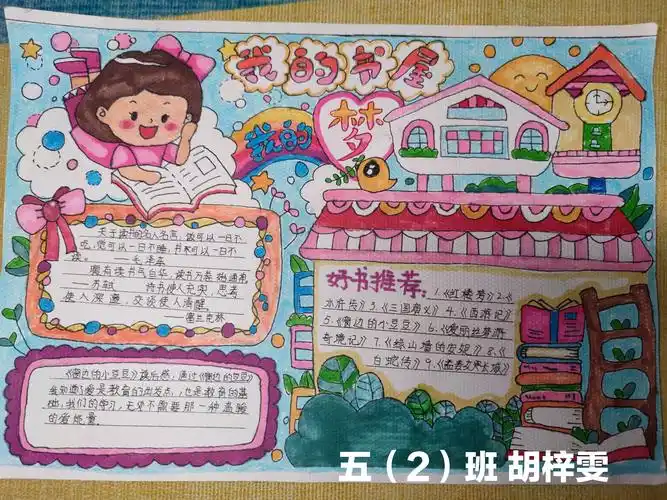 我的书屋
我的梦
关于读书的名人名言,饭可以一日不
吃,觉可以一日不睡,书不可以一日不
读。
——毛泽东
腹有读书气自华,读书万卷始通神。
——苏轼 读书使人充实,思考
使人深邃,交谈使人清醒。
富兰克林
好书推荐:1.《红楼梦》2.《
水浒传》3.《三国演义》4.《西游记》
5.《窗边的小豆豆》6.《爱丽丝梦游
奇境记》7.《绿山墙的安妮》8.《
白蛇传》9.《孟姜女哭长城》
《窗边的小豆豆》读后感,通过《窗边的小豆豆》
我知道了爱是教育的出发点,也是教育的基
础,我们的学习,无处不需要那一种温暖
的爱能量.
五(2)班 胡梓雯